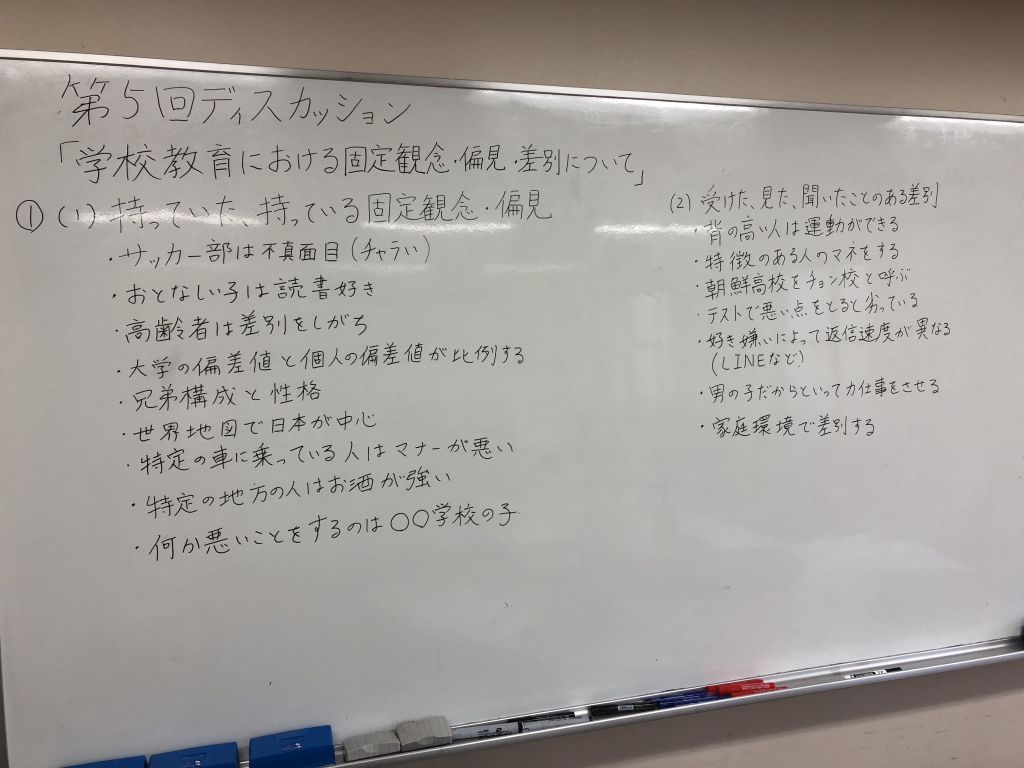 第5回ディスカッション
「学校教育における固定観念・偏見・差別について」
① (1) 持っていた、持っている固定観念・偏見
・サッカー部は不真面目(チャラい)
・おとなしい子は読書好き
・高齢者は差別をしがち
・大学の偏差値と個人の偏差値が比例する
・兄弟構成と性格
・世界地図で日本が中心
・特定の車に乗っている人はマナーが悪い
・特定の地方の人はお酒が強い
・何か悪いことをするのは〇〇学校の子
(2) 受けた、見た、聞いたことのある差別
・背の高い人は運動ができる
・特徴のある人のマネをする
・朝鮮高校をチョン校と呼ぶ
・テストで悪い点をとると劣っている
・好き嫌いによって返信速度が異なる
(LINEなど)
・男の子だからといって力仕事をさせる
・家庭環境で差別する